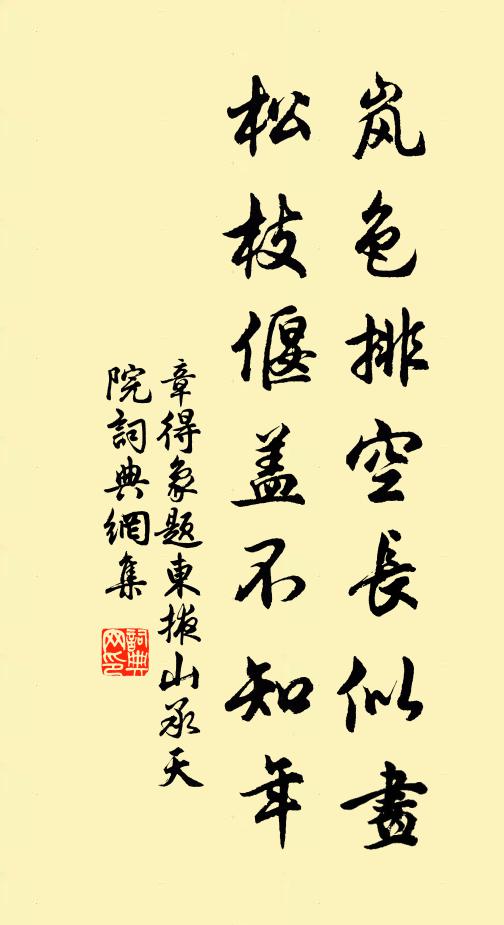 岚色排空長似畫
松枝偃盖不知年
章得象题東掖山承天
院詞典網集
詞典网印